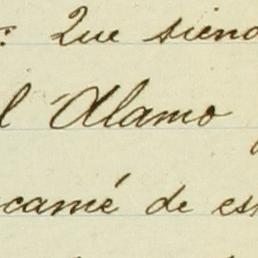 : Que siend
l Alamo
camé de es